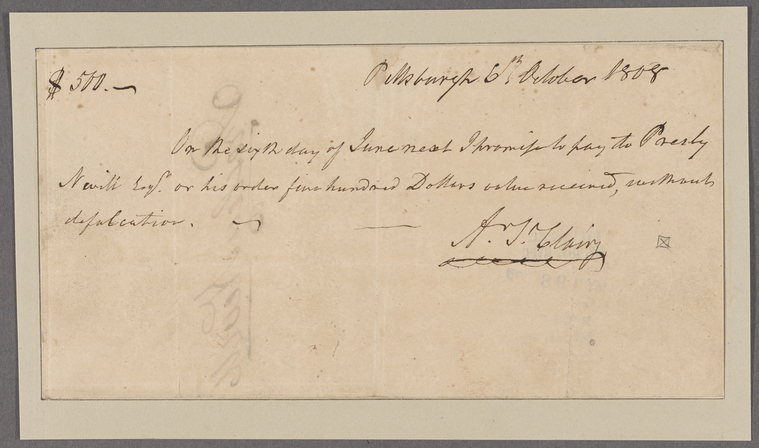 $500.— Pittsburgh 6th October 1808
On the sixth day of June next I promise to pay to Presly
Nevill Esqr. or his order five hundred Dollars value received, without
defalcation.
Ar. St. Clair